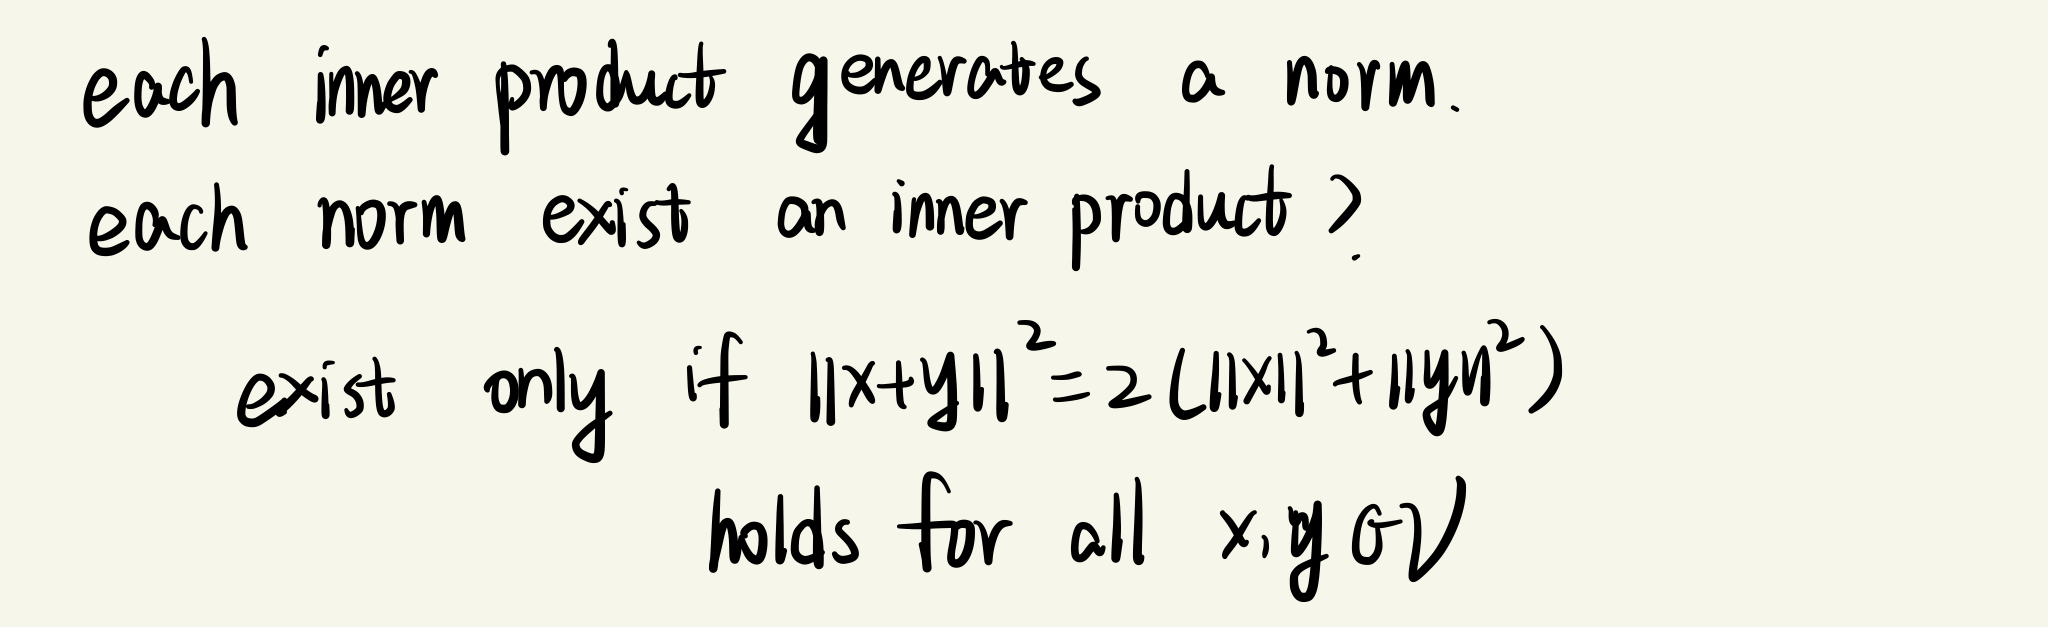 each inner product generates a norm.
each norm exist an inner product?
exist only if ||x+y||²=2(||x||²+||y||²)
holds for all x,y ∈V